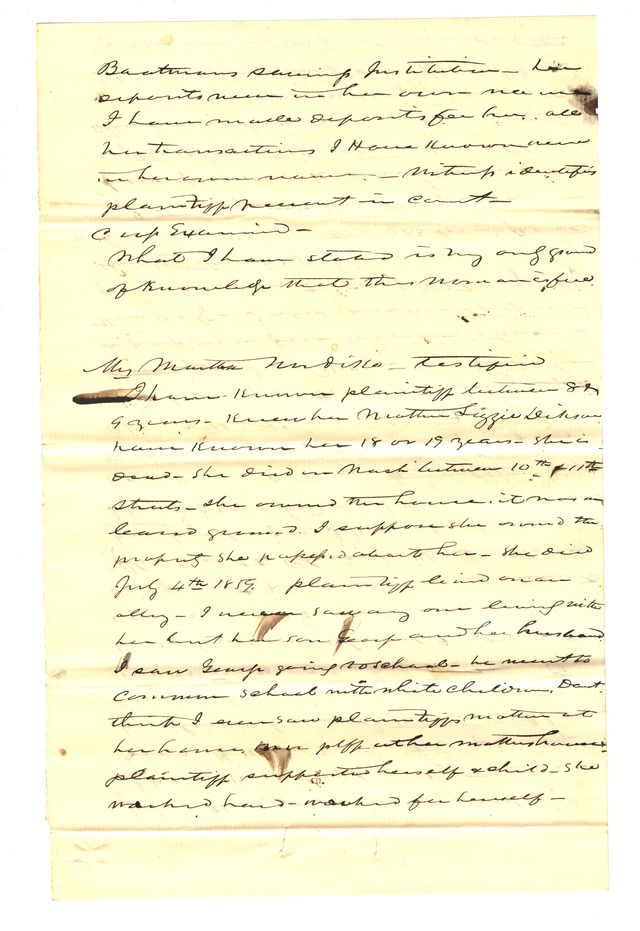 Boatmans saving Institution - her
deposits were in her own name
I have made deposits for her. all
her transactions I Have Known were
in her own name. - Witness identifies
plaintiff present in court -
Cross Examined -
What I have stated is my only ground
of Knowledge that this Woman is free.
Mrs Martha - testified
I have Known plaintiff between 8 &
9 years - Knew her Mother Lizzie Dickson
have Known her 18 or 19 years - she is
dead - she died on Wash between 10th & 11th
streets - she owned the house. it was on
leased ground. I suppose she owned the
property she possessed about her - she died
July 4th 1859. plaintiff lived on an
alley - I never saw any one living with
her but her son George and her husband
I saw George going to school - he went to
common school with white children. Dont
think I ever saw plaintiffs mother at
her house, nor plff at her mothers house -
plaintiff supported herself & child - she
worked hard - worked for herself -